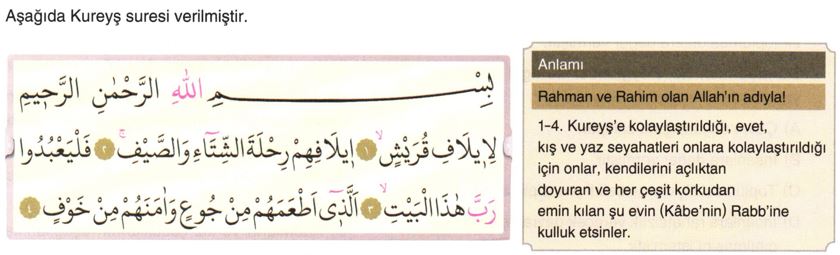 Aşağıda Kureyş suresi verilmiştir.
بِسْمِ اللهِ الرَّحْمٰنِ الرَّح۪يمِ
لِا۪يلَافِ قُرَيْشٍۙ ﴿١﴾ ا۪يلَافِهِمْ رِحْلَةَ الشِّتَٓاءِ وَالصَّيْفِۚ ﴿٢﴾ فَلْيَعْبُدُوا
رَبَّ هٰذَا الْبَيْتِۙ ﴿٣﴾ اَلَّذ۪ٓي اَطْعَمَهُمْ مِنْ جُوعٍ وَاٰمَنَهُمْ مِنْ خَوْفٍ ﴿٤﴾
Anlamı
Rahman ve Rahim olan Allah'ın adıyla!
1–4. Kureyş'e kolaylaştırıldığı, evet,
kış ve yaz seyahatleri onlara kolaylaştırıldığı
için onlar, kendilerini açlıktan
doyuran ve her çeşit korkudan
emin kılan şu evin (Kâbe'nin) Rabb'ine
kulluk etsinler.